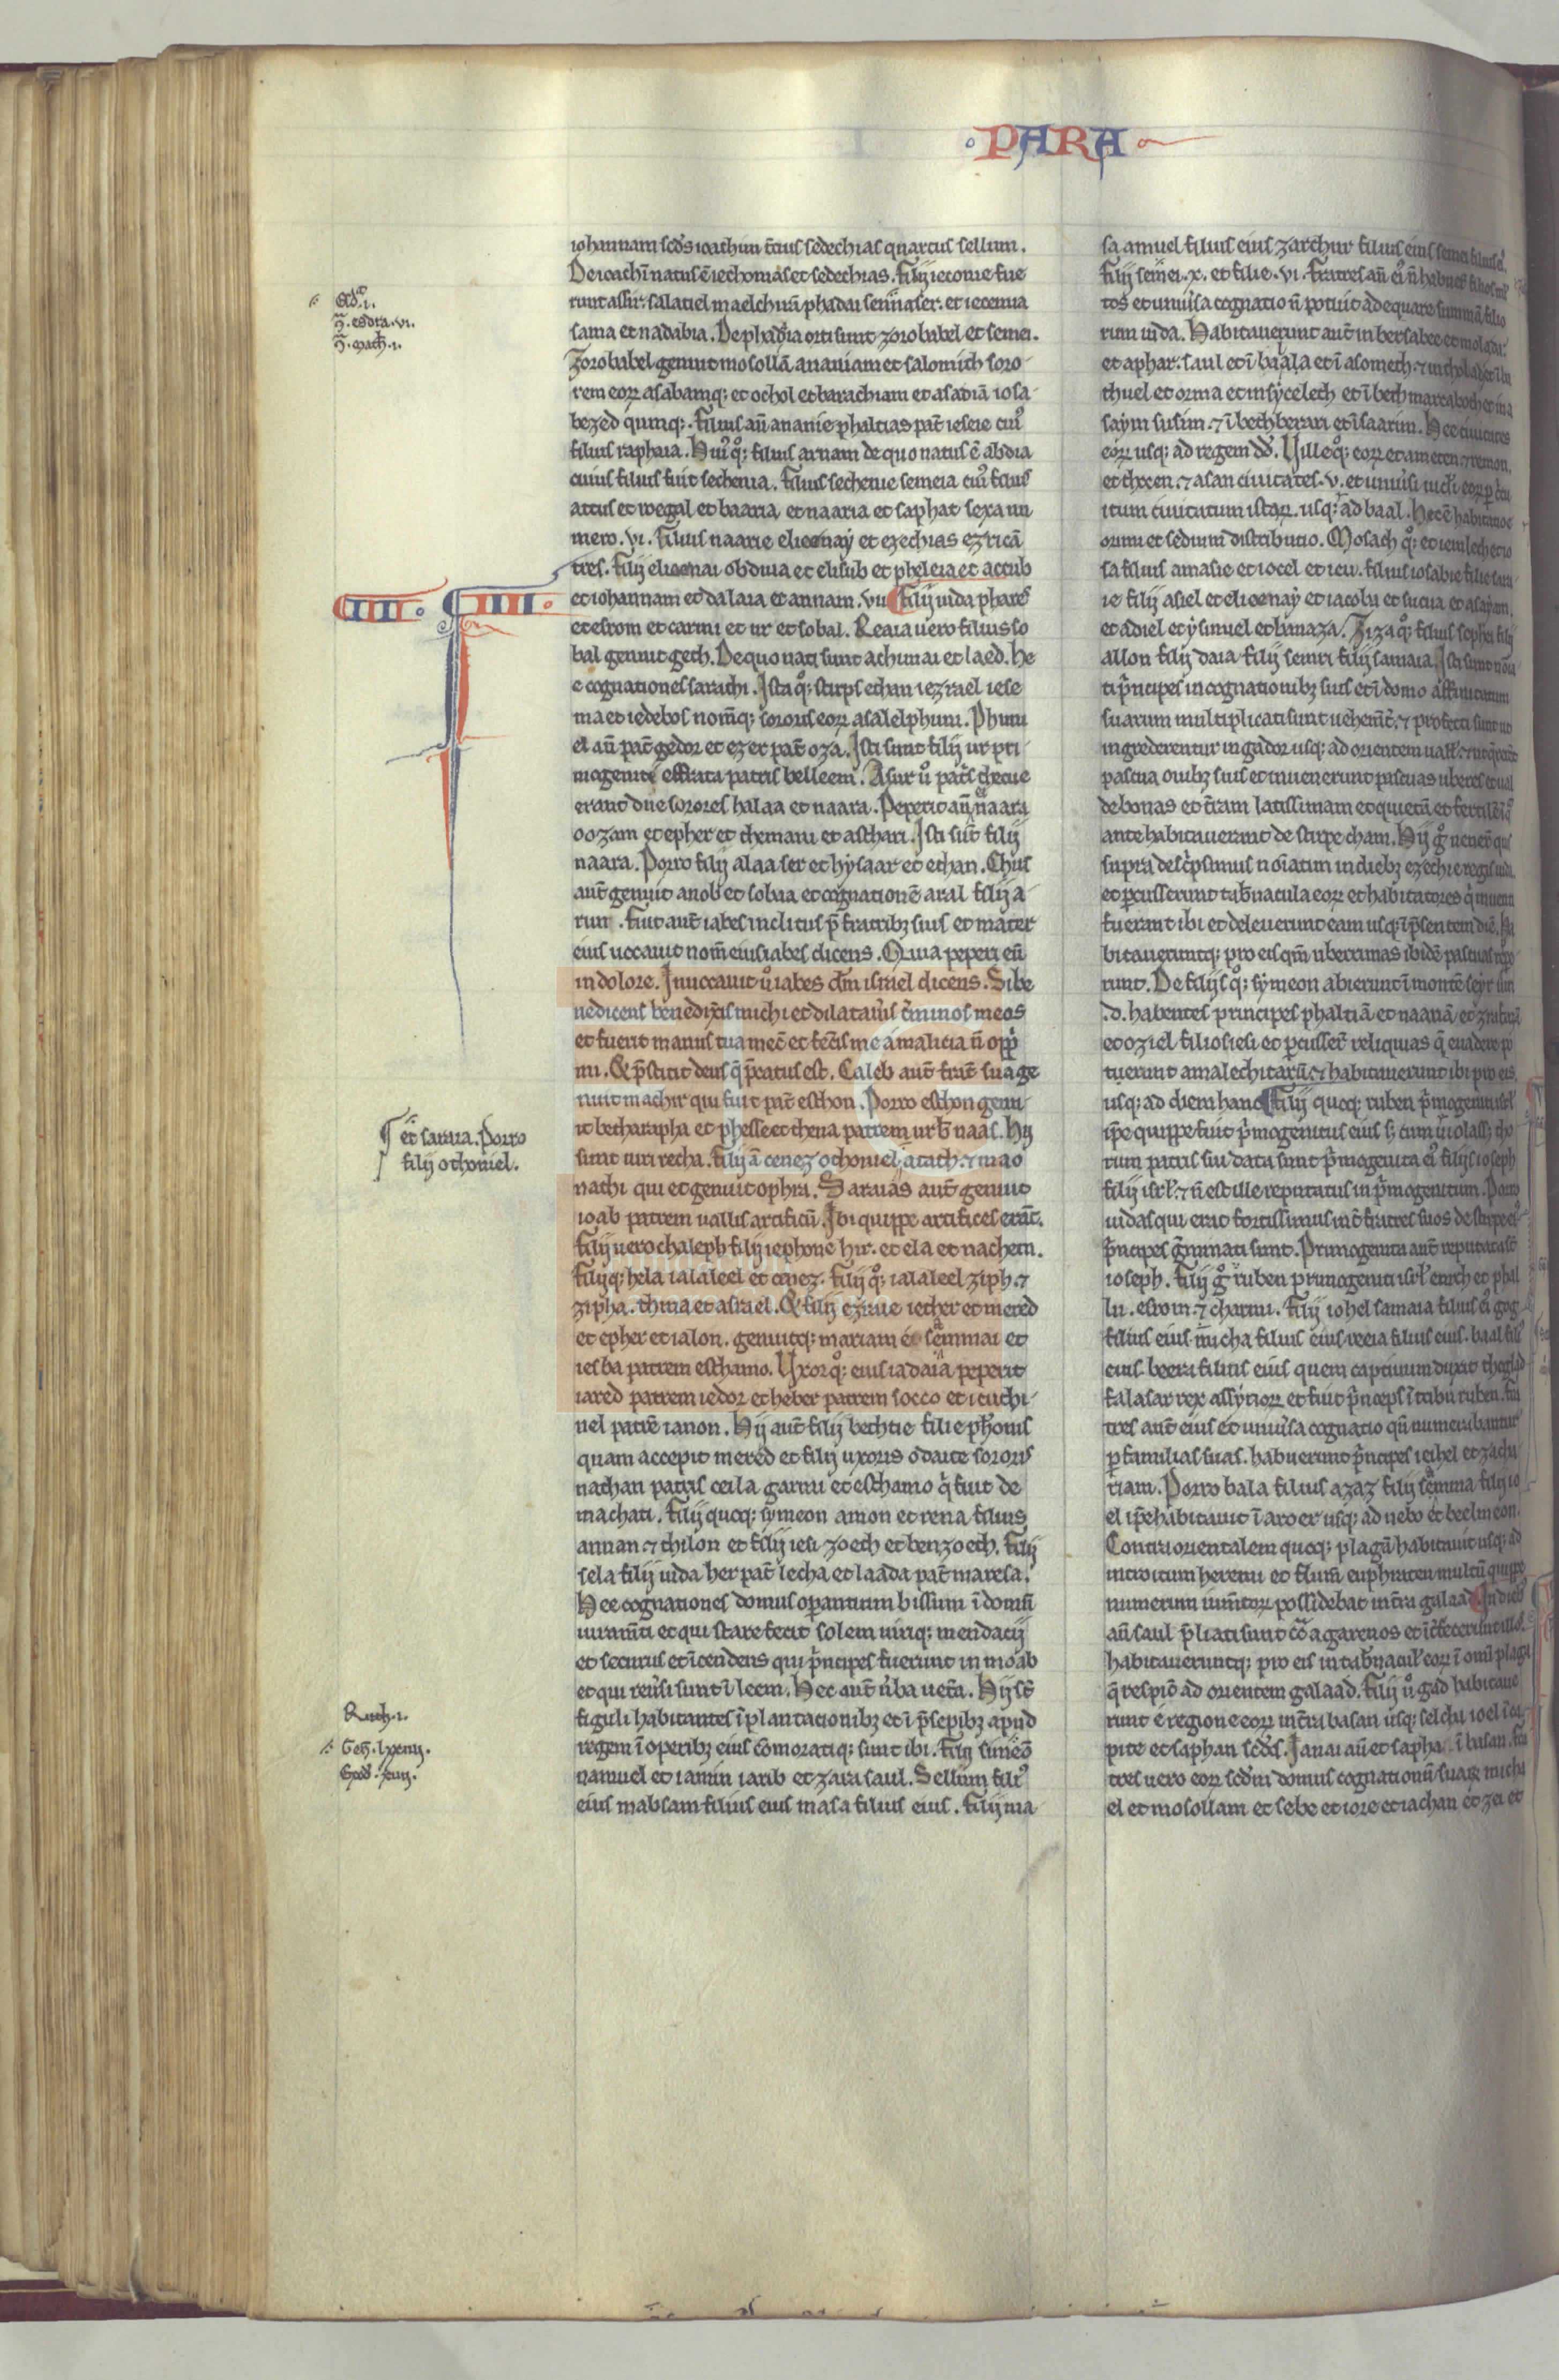 PARA
iohannam scds ioachim t̃cius sedechias quartus sellum.
De ioachĩ natus ẽ iechonias et sedechias. filij ieconie fue
runt assir. salatiel melchirã phadai sennaser. et iecemia
sama et nadabia. De phadaia orti sunt zorobabel et semei.
Zorobabel genuit mosollã ananiam et salomith soro
rem eoꝝ asabamqꝫ et ochol et barachiam et asadiã iosa
bezed qͥnqꝫ. filius aũ ananie phaltias pat̃ ieseie cuiꝰ
filius raphaia. Huiꝰ qͦꝫ filius arnam de quo natus ẽ abdia
cuius filius fuit sechenia. filius sechenie semeia cuiꝰ filius
attus et iregal et baaria et naaria et saphat sexa nu
mero. vi. filius naarie elioenay et ezechias ezricã
tres. filij elioenai obduia et elisub et pheleia et accub
et iohannam et dalaia et annam. vii filij iuda phares
IIII. IIII.
et esrom et carmi et ur et sobal. Reaia uero filius so
bal genuit geth. De quo nati sunt achimai et laed. he
e cognationes sarathi. Ista qͦꝫ stirps ethan iezrael iese
ma et iedebos nom̃qꝫ sororis eoꝝ asalelphuni. Phunu
el aũ pat̃ gedor et ezer pat̃ oza. Isti sunt filij ur pri
mogeniti effrata patris belleem. Asur uͦ patͥs thecue
erant due sorores halaa et naara. Peperit aũ naara
oozam et epher et themani et asthari. Isti sũt filij
naara. Porro filij alaa ser et hysaar et ethan. Chus
aut̃ genuit anob et soboa et cognationẽ aral filij a
run. fuit aut̃ iabes inclitus p̃ fratribꝫ suis et mater
eius uocauit nom̃ eius iabes dicens. Quia peperi eũ
in dolore. Inuocauit uͦ iabes dm̃ israel dicens. Si be
nedicens benedixͥs michi et dilataũis t̃minos meos
et fuerit manus tua mecũ et fecͥs me a malicia ñ oppͥ
mi. Et p̃stitit deus q̃ p̃catus est. Caleb aut̃ frat̃ sua ge
nuit machir qui fuit pat̃ esthon. Porro esthon genu
it betharapha et phesse et thena patrem urb̃ naas. Hij
sunt uiri recha. filij ã cenez othoniel atath. ⁊ mao
⁋ et saraia. Porro
filij othoniel.
nathi qui et genuit ophra. Saraias aut̃ genuit
ioab patrem uallis artificũ. Ibi quippe artifices erãt.
filij uero chaleph filij iephone hir. et ela et nahem.
filijqꝫ hela ialaleel et cenez. filij qͦꝫ ialaleel ziph. ⁊
zipha. thiria et asrael. Et filij ezraie iether et mered
et epher et ialon. genuitqꝫ mariam et semmai et
iesba patrem esthamo. Uxor qͦꝫ eius iadaia peperit
iared patrem iedor et heber patrem socco et icuthi
uel patrẽ ianon. Hij aut̃ filij bethie filie pharaonis
quam accepit mered et filij uxoris odaite sororis
nathan patris ceila garmi et esthamo qͥ fuit de
machati. filij quoqꝫ symeon amon et rena filius
annan ⁊ thilon et filij iesi zoeth et benzoeth. filij
sela filij iuda her pat̃ lecha et laada pat̃ maresa.
Hee cognationes domus operantium bissum ĩ domũ
iuram̃ti et qui stare fecit solem uiriqꝫ mendacij
et securus et ĩcendens qui pͥncipes fuerunt in moab
et qui reũsi sunt ĩ leem. Hec aut̃ ũba ueta. Hij st̃
figuli habitantes ĩ plantationibꝫ et ĩ p̃sepibꝫ apud
regem ĩ operibꝫ eius cõmoratiqꝫ sunt ibi. filij simeõ
namuel et iamin iarib et zara saul. Sellum filiꝰ
eius mabsam filius eius masa filius eius. filij ma
Ruth. i.
sa amuel filius eius zacchur filius eius semei filius eͥ.
filij semei. x. et filie. vi. fratres aũ eiꝰ ñ habuer̃ filios ml̃
tos et uniũsa cognatio ñ potuit adequare summã filio
rum iuda. Habitauerunt aut̃ in bersabee et molada.
eoꝝ usqꝫ ad regem dd̃. Uille qͦꝫ eoꝝ
itum ciuitatum istaꝝ. usqꝫ ad baal. Hec ẽ habitatio
orum et sedium distributio. Mosach qͦꝫ et iemlech et io
sa filius amasie et iocel et ieu. filius iosabie filie sara
ie filij asiel et elioenay et iacoba et sucua et asayam.
et adiel et ysmuel et banaza. Ziza qͦꝫ filius sephei filij
allon filij daia filij semri filij samaia. Isti sunt noĩa
ti pͥncipes in cognationibꝫ suis et ĩ domo affinitatum
suarum multiplicati sunt uehem̃t̃. ⁊ profecti sunt ut
ingrederentur in gador usqꝫ ad orientem uall̃. ⁊ ut qͣrer̃t
pascua ouibꝫ suis et inuenerunt pascuas uberes et ual
de bonas et t̃ram latissimam et quietã et fertilẽ ĩ qͣ
ante habitauerant de stirpe cham. Hij gͦ uener̃t qui
supra descͥpsimus noĩatim in diebꝫ ezechie regis iuda
et pcusserunt tab̃nacula eoꝝ et habitatores qͥ inuenti
fuerant ibi et deleuerunt eam usqꝫ ĩ p̃sentem diẽ. ha
bitaueruntqꝫ pro eis qm̃ uberrimas ibidẽ pascuas repe
runt. De filijs qͦꝫ symeon abierunt ĩ montẽ seyr uiri
.d. habentes principes phaltiã et naariã et
et oziel filios iesi et pcusser̃t reliquias q̃ euadere po
tuerunt amalechitarũ. ⁊ habitauerunt ibi pro eis.
usqꝫ ad diem hanc filij quoqꝫ ruben pͥmogeniti isrl̃
ip̃e quippe fuit pͥmogenitus eius sꝫ cum uiolass̃ tho
rum patris sui data sunt pͥmogenita eiꝰ filijs ioseph
filij isrl̃. ⁊ ñ est ille reputatus in pͥmogenitum. Porro
iudas qui erat fortissimus int̃ fratres suos de stirpe eiꝰ
pͥncipes g̃minati sunt. Primogenita aut̃ reputata st̃
ioseph. filij gͦ ruben primogeniti isrl̃ enoch et phal
lu. esrom. ⁊ charmi. filij iohel samaia filius eiꝰ gog
filius eius. semei filius eius
micha filius eius reeia filius eius. baal filiꝰ
eius. beera filius eius quem captiuum duxit theglad
falasar rex assyrioꝝ et fuit pͥnceps ĩ tribu ruben. fra
tres aut̃ eius et uniũsa cognatio qñ numerabantur
p familias suas. habuerunt pͥncipes ieihel et zacha
riam. Porro bala filius azaz filij semma filij io
el ip̃e habitauit ĩ aroer usqꝫ ad nebo et beelmeon.
Contra orientalem quoqꝫ plagã habitauit usqꝫ ad
introitum heremi et flum̃ euphraten multũ quippe
numerum ium̃toꝝ possidebat in t̃ra galaad. In diebꝫ
aũ saul p̃liati sunt cõ agarenos et ĩt̃fecerunt illos.
habitaueruntqꝫ pro eis in tab̃naculꝭ eoꝝ ĩ om̃i plaga
q̃ respicit ad orientem galaad. filij uͦ gad habitaue
runt e regione eoꝝ in t̃ra basan usqꝫ selcha ioel ĩ ca
pite et saphan scds̃. Ianai aũ et saphat ĩ basan. fra
tres uero eoꝝ scdm̃ domus cognationũ suaꝝ micha
el et mosollam et sebe et iore et iachan et zei et